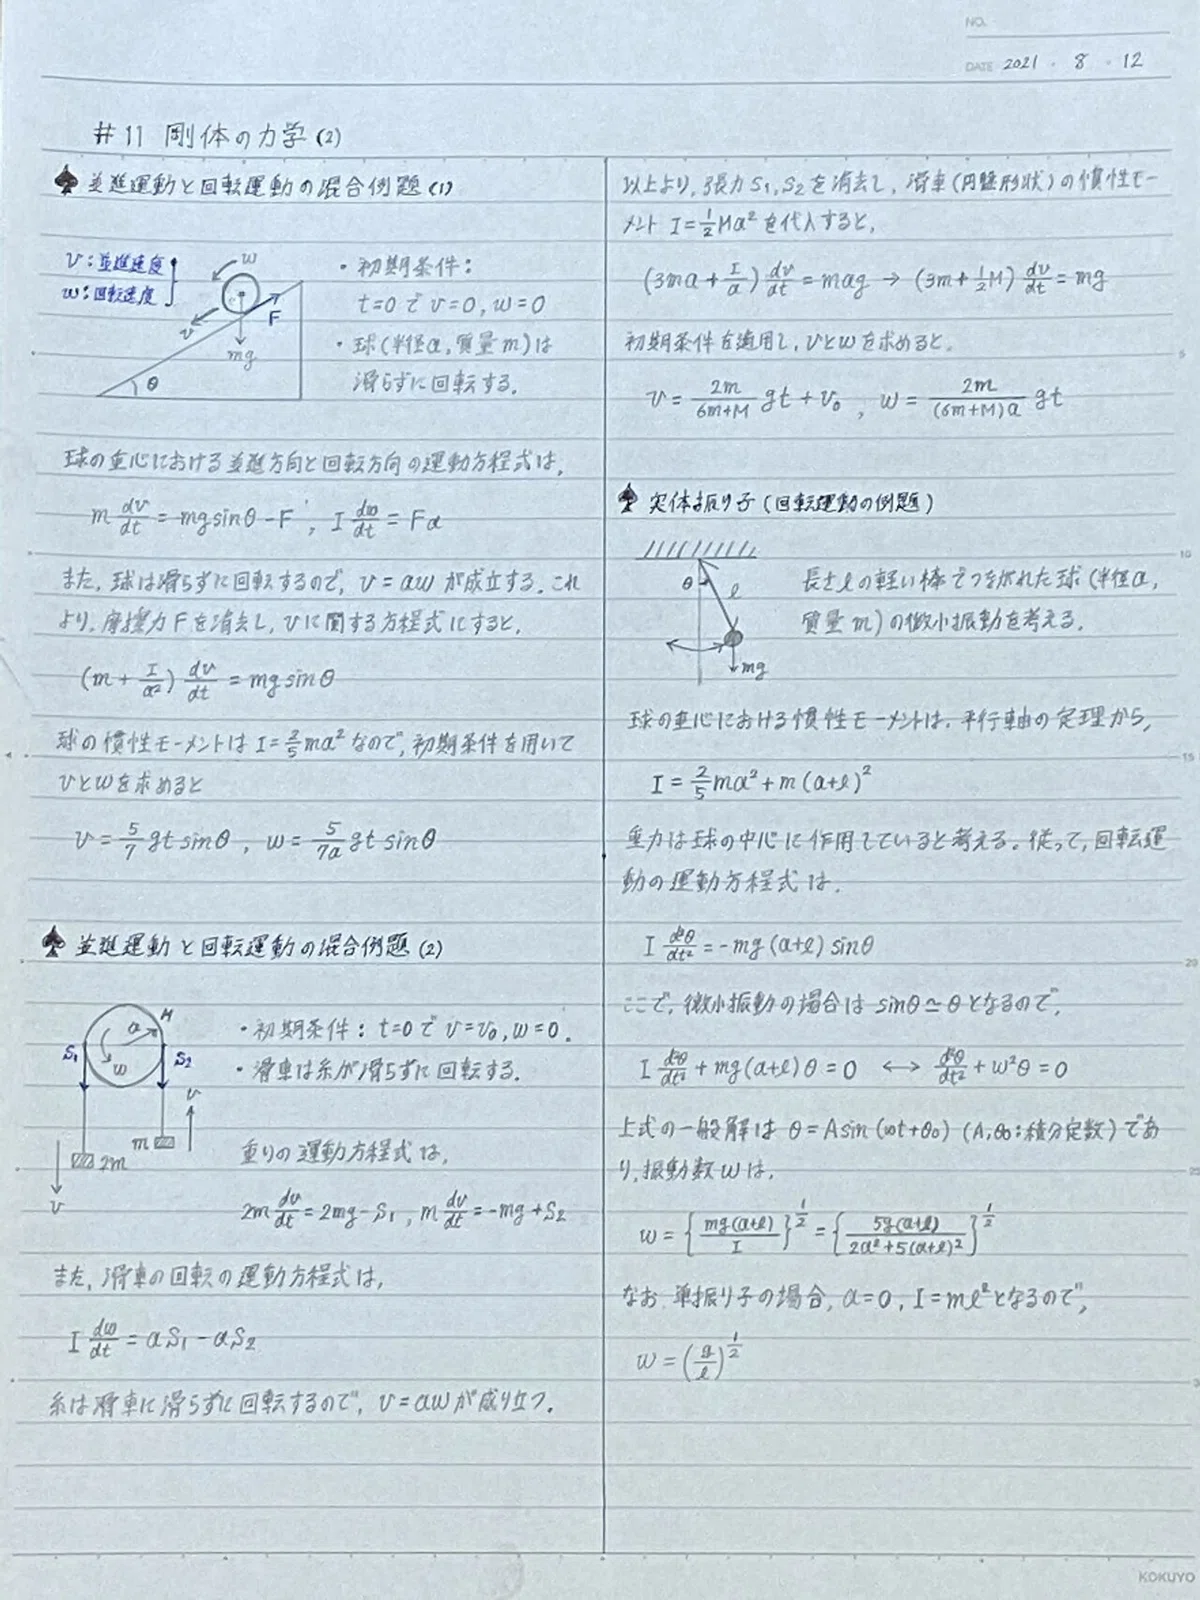 NO.
DATE 2021 ・ 8 ・ 12
#11 剛体の力学(2)
♠ 並進運動と回転運動の混合例題(1)
v:並進速度
w:回転速度
w
v
F
mg
θ
・初期条件:
t=0でv=0, w=0
・球(半径a,質量m)は
滑らずに回転する.
球の重心における並進方向と回転方向の運動方程式は,
m dv/dt = mgsinθ-F , I dw/dt = Fa
また,球は滑らずに回転するので, v=aw が成立する.これ
より,摩擦力Fを消去し,vに関する方程式にすると,
(m + I/a²) dv/dt = mgsinθ
球の慣性モーメントは I=2/5 ma² なので,初期条件を用いて
vとwを求めると
v = 5/7 gt sinθ , w = 5/7a gt sinθ
♠ 並進運動と回転運動の混合例題(2)
a
M
S1
w
S2
v
m
2m
v
・初期条件: t=0で v=v₀, w=0.
・滑車は糸が滑らずに回転する.
重りの運動方程式は,
2m dv/dt = 2mg-S1 , m dv/dt = -mg+S2
また,滑車の回転の運動方程式は,
I dw/dt = aS1 - aS2
糸は滑車に滑らずに回転するので, v=awが成り立つ.
以上より,張力S1,S2を消去し,滑車(円盤形状)の慣性モー
メント I=1/2 Ma² を代入すると,
(3ma + I/a) dv/dt = mag → (3m+1/2 M) dv/dt = mg
初期条件を適用し,vとwを求めると,
v = 2m/6m+M gt + v₀ , w = 2m/(6m+M)a gt
♠ 実体振り子(回転運動の例題)
θ
l
mg
長さlの軽い棒でつながれた球(半径a,
質量m)の微小振動を考える.
球の重心における慣性モーメントは,平行軸の定理から,
I = 2/5 ma² + m(a+l)²
重力は球の中心に作用していると考える.従って,回転運
動の運動方程式は,
I d²θ/dt² = -mg(a+l) sinθ
ここで,微小振動の場合は sinθ≃θとなるので,
I d²θ/dt² + mg(a+l)θ = 0 ⟷ d²θ/dt² + w²θ = 0
上式の一般解は θ=Asin(wt+θ₀) (A,θ₀:積分定数)であ
り,振動数wは,
w = {mg(a+l)/I}^1/2 = {5g(a+l)/2a²+5(a+l)²}^1/2
なお,単振り子の場合, a=0, I=ml²となるので,
w = (g/l)^1/2
KOKUYO